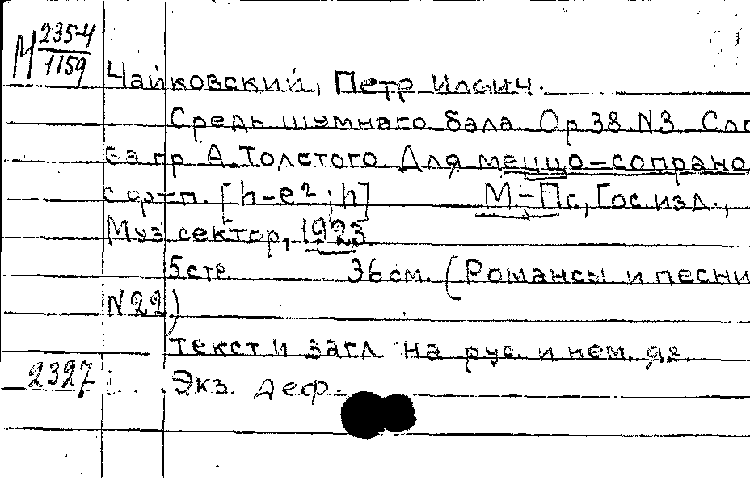 М 235-4
1159
Чайковский, Петр Ильич.
Средь шумнаго бала. Op 38 N3. Сло
ва гр. А. Толстого Для меццо-сопрано
с ф-п. [h-e²; h] М-Пг., Гос. изд.,
Муз. сектор, 1923
5 стр. 36 см. (Романсы и песни
N 22)
Текст и загл. на рус. и нем. яз.
2327 Экз. деф.